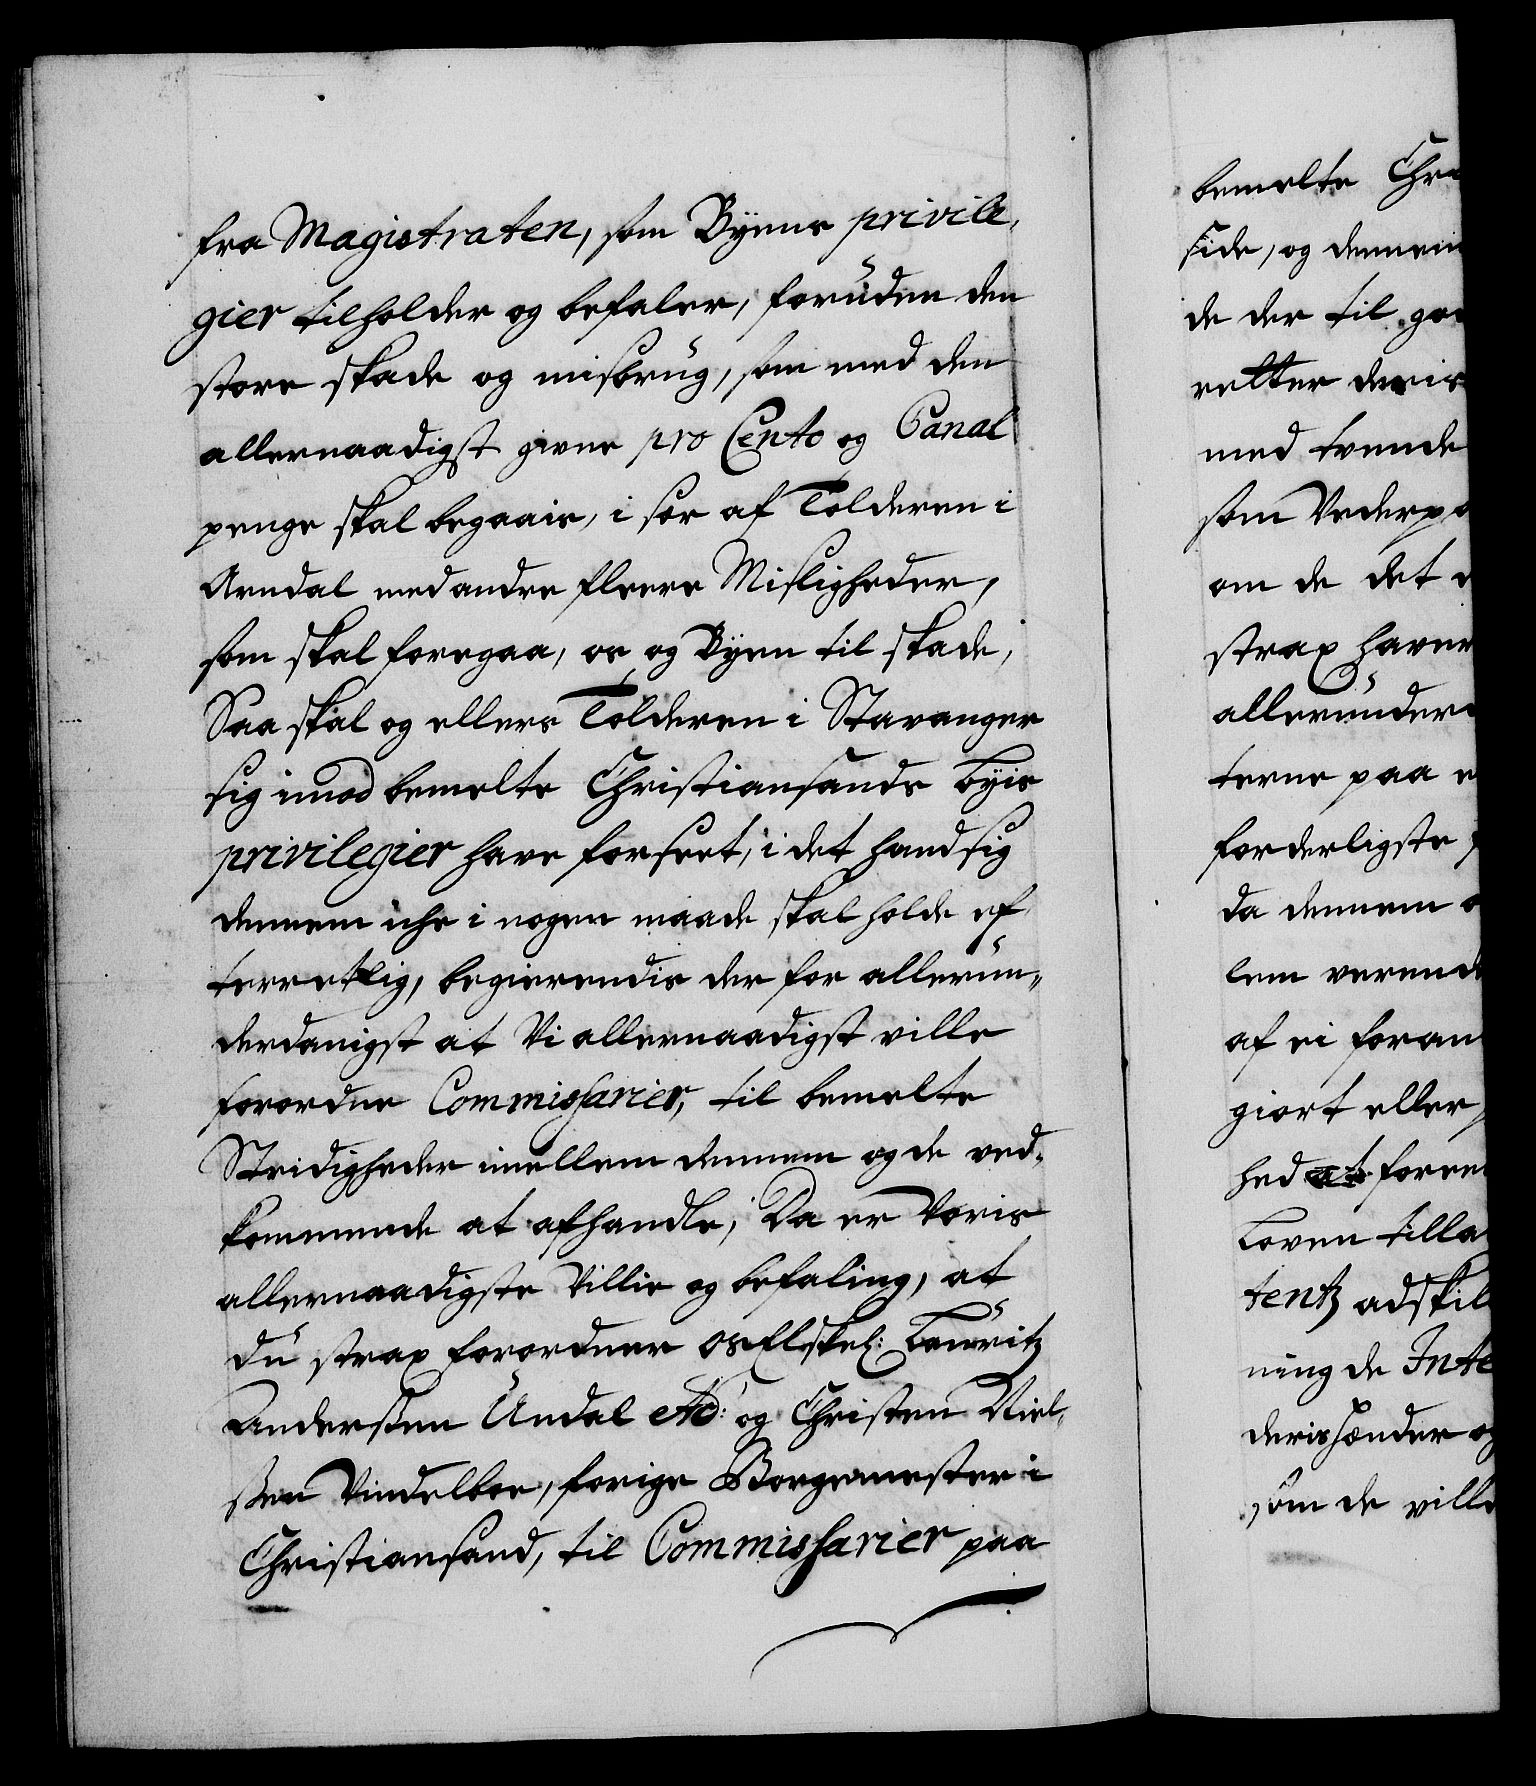 fra Magistraten, som Byens privile,
gier tilholder og befaler, foruden den
store skade og misbrug, som med den
allernaadigst givne pro Cento og Canal
penge skal begaais, i sær af Tolderen i
Arndal med andre fleere Misligheder,
som skal foregaa, os og Byen til skade,
Saa skal og ellers Tolderen i Stavanger
sig imod bemelte Christiansands byis
privilegier have forseet, i det hand sig
dennem iche i nogen maade skal holde ef,
terretlig, begierendis der for allerun„
derdanigst at Vi allernaadigst ville
forordne Commissarier, til bemelte
Stridigheder imellem dennem og de ved,
kommende at afhandle; Da er Voris
allernaadigste Villie og befaling, at
du strax forordner os Elskel: Lauritz
Andersøn Undal Ad: og Christen Niel,
søn Vindelboe, forige Borgemester i
Christiansand, til Commissarier paa
bemelte Chr
side, og dennem
de der til
retter deris
med tvende
som Vederpa
om de det
strax haver
allerunder
terne paa
forderligste
da dennem
lem verend
af ei foran
giort eller
hed at foree
Loven tilla
tentz adskil
ning de Inte
deris hænder og
som de ville